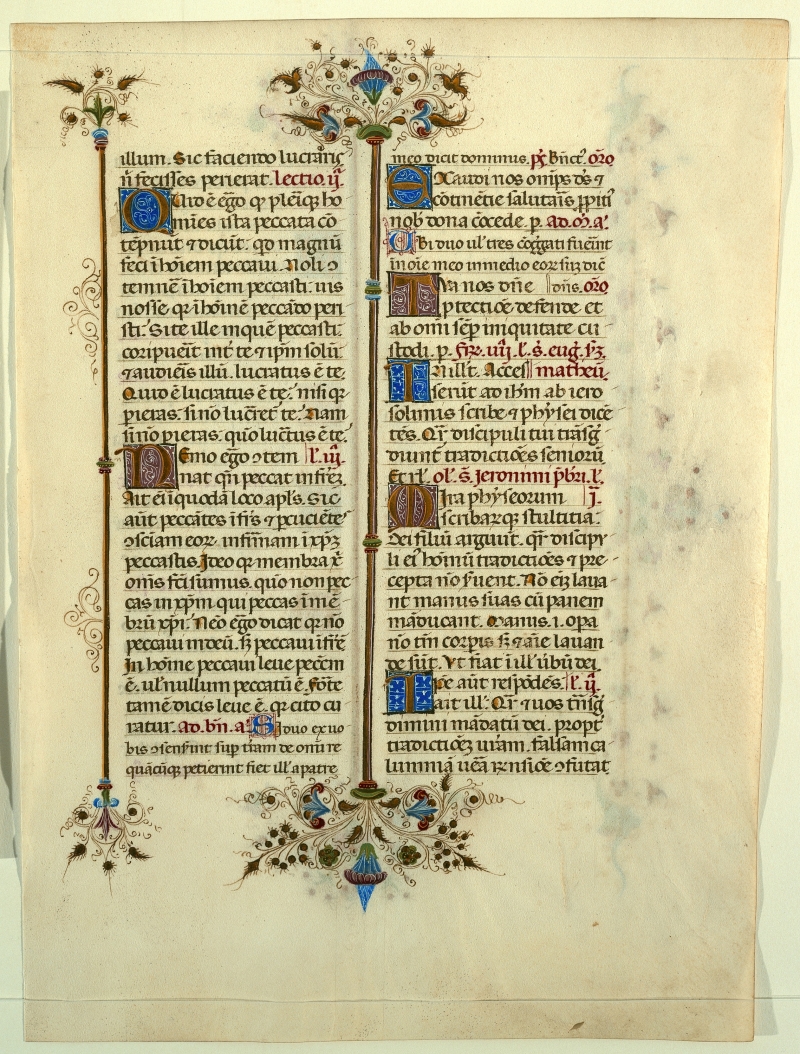 illum. Sic faciendo lucraris
ñ fecisses perierat. lectio .ij.
Quid ē ego qꝫ pleriqꝫ ho
mines ista peccata cō
tēpnūt ⁊ dicūt: qd magnū
feci ī hoīem peccaui. Noli ꝯ
temnē ī hoīem peccasti: uis
nosse qꝛ ī hoīnē peccādo peri
sti: Si te ille in quē peccasti:
coripuerit int te ⁊ ipm solū
⁊ audiēīs illū. lucratus ē te.
Quid ē lucratus ē te: nisi qꝛ
pieras: si nō lucret te: Nam
si nō pieras: quō luctus ē te:
Nemo ego ꝯtem l. iij.
nat qn peccat in frēꝫ.
Ait eī ī quodā loco apls. Sic
aūt peccātes ī frīs ⁊ pcuciētes
ꝯsciam eoꝝ infirmam ī xpꝫ
peccastis. Ideo qꝛ membra xī
om̄s fcī sumus. quō non pec
cas in xpm qui peccas ī mē
brū xpī: Neō ego dicat qꝛ nō
peccaui in deū. sꝫ peccaui ī frē
In hoīne peccaui leue peccm
ē. ul nullum peccatū ē. Forte
tamē dicis leue ē. qꝛ cito cu
ratur. ad. bn̄. a. Si duo ex uo
bis ꝯsenserint sup terram de omni re
quācūqꝫ petierint fiet ill' a patre
meo dicit dominus. p̄s. Bn̄ct'. oŕo
Exaudi nos om̄ips ds ⁊
cōtinētie salutaīs ppiti'
nob dona cōcede. p. ad. m̄. a'.
Ubi duo ul' tres cōggati fuerint
in noīe meo in medio eoꝝ suꝫ dic̄
Tua nos dn̄e dn̄s. oŕo
ptectiōe defende et
ab omi sēp iniquitate cu
stodi. p. fir. iiij. l. s. eug'. sꝫ.
In ill' t'. Acces matheū.
serūt ad ihm ab iero
solimis scribe ⁊ physei dicē
tēs. Qr discipuli tui trāsg
diunt tradictiōes senioꝝ
Et rl'. ol'. s. Jeronimi pbri. l.
Mira physeorum j.
scribarqꝫ stultitia:
Dei filiū arguūt. qꝛ discipu
li ei' hoīnū tradictiōes ⁊ pre
cepta nō suent. Nō eiꝫ laua
nt manus suas cū panem
māducant. Manus .i. opa
nō tm̄ corpis sꝫ ⁊ aīe lauan
de sūt. Vt fiat ī ill' ubū dei.
Ipe aūt respōdēs. l. ij.
ait ill'. Qr ⁊ uos trāsg
dimini mādatū dei. propt
tradictiōeꝫ urām. falsam ca
lummiā uera rn̄siōe ꝯfutat